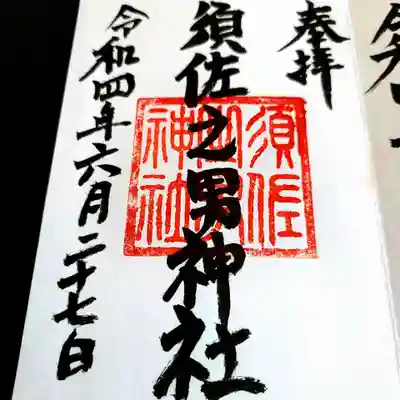 奉拝
須佐之男神社
令和四年六月二十七日
須佐
神社